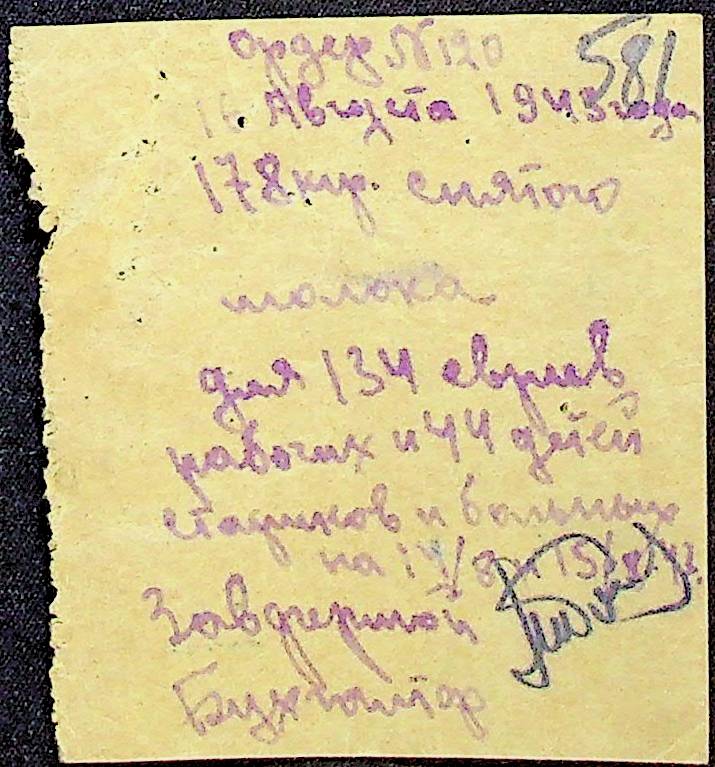 Ордер N 120
581
16 Августа 1943 года
178 кгр. снятого
молока
для 134 евреев
рабочих и 44 детей
стариков и больных
на 14/8 и 15/8
Завфермой
Бухгалтер